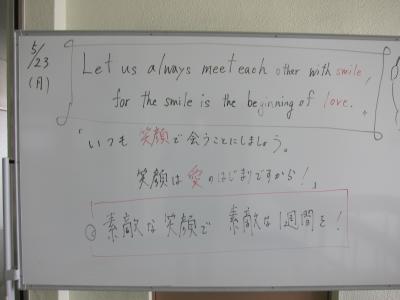 5/23
(月)
Let us always meet each other with smile,
for the smile is the beginning of love.
「いつも笑顔で会うことにしましょう。
笑顔は愛のはじまりですから!」
☺素敵な笑顔で 素敵な1週間を!